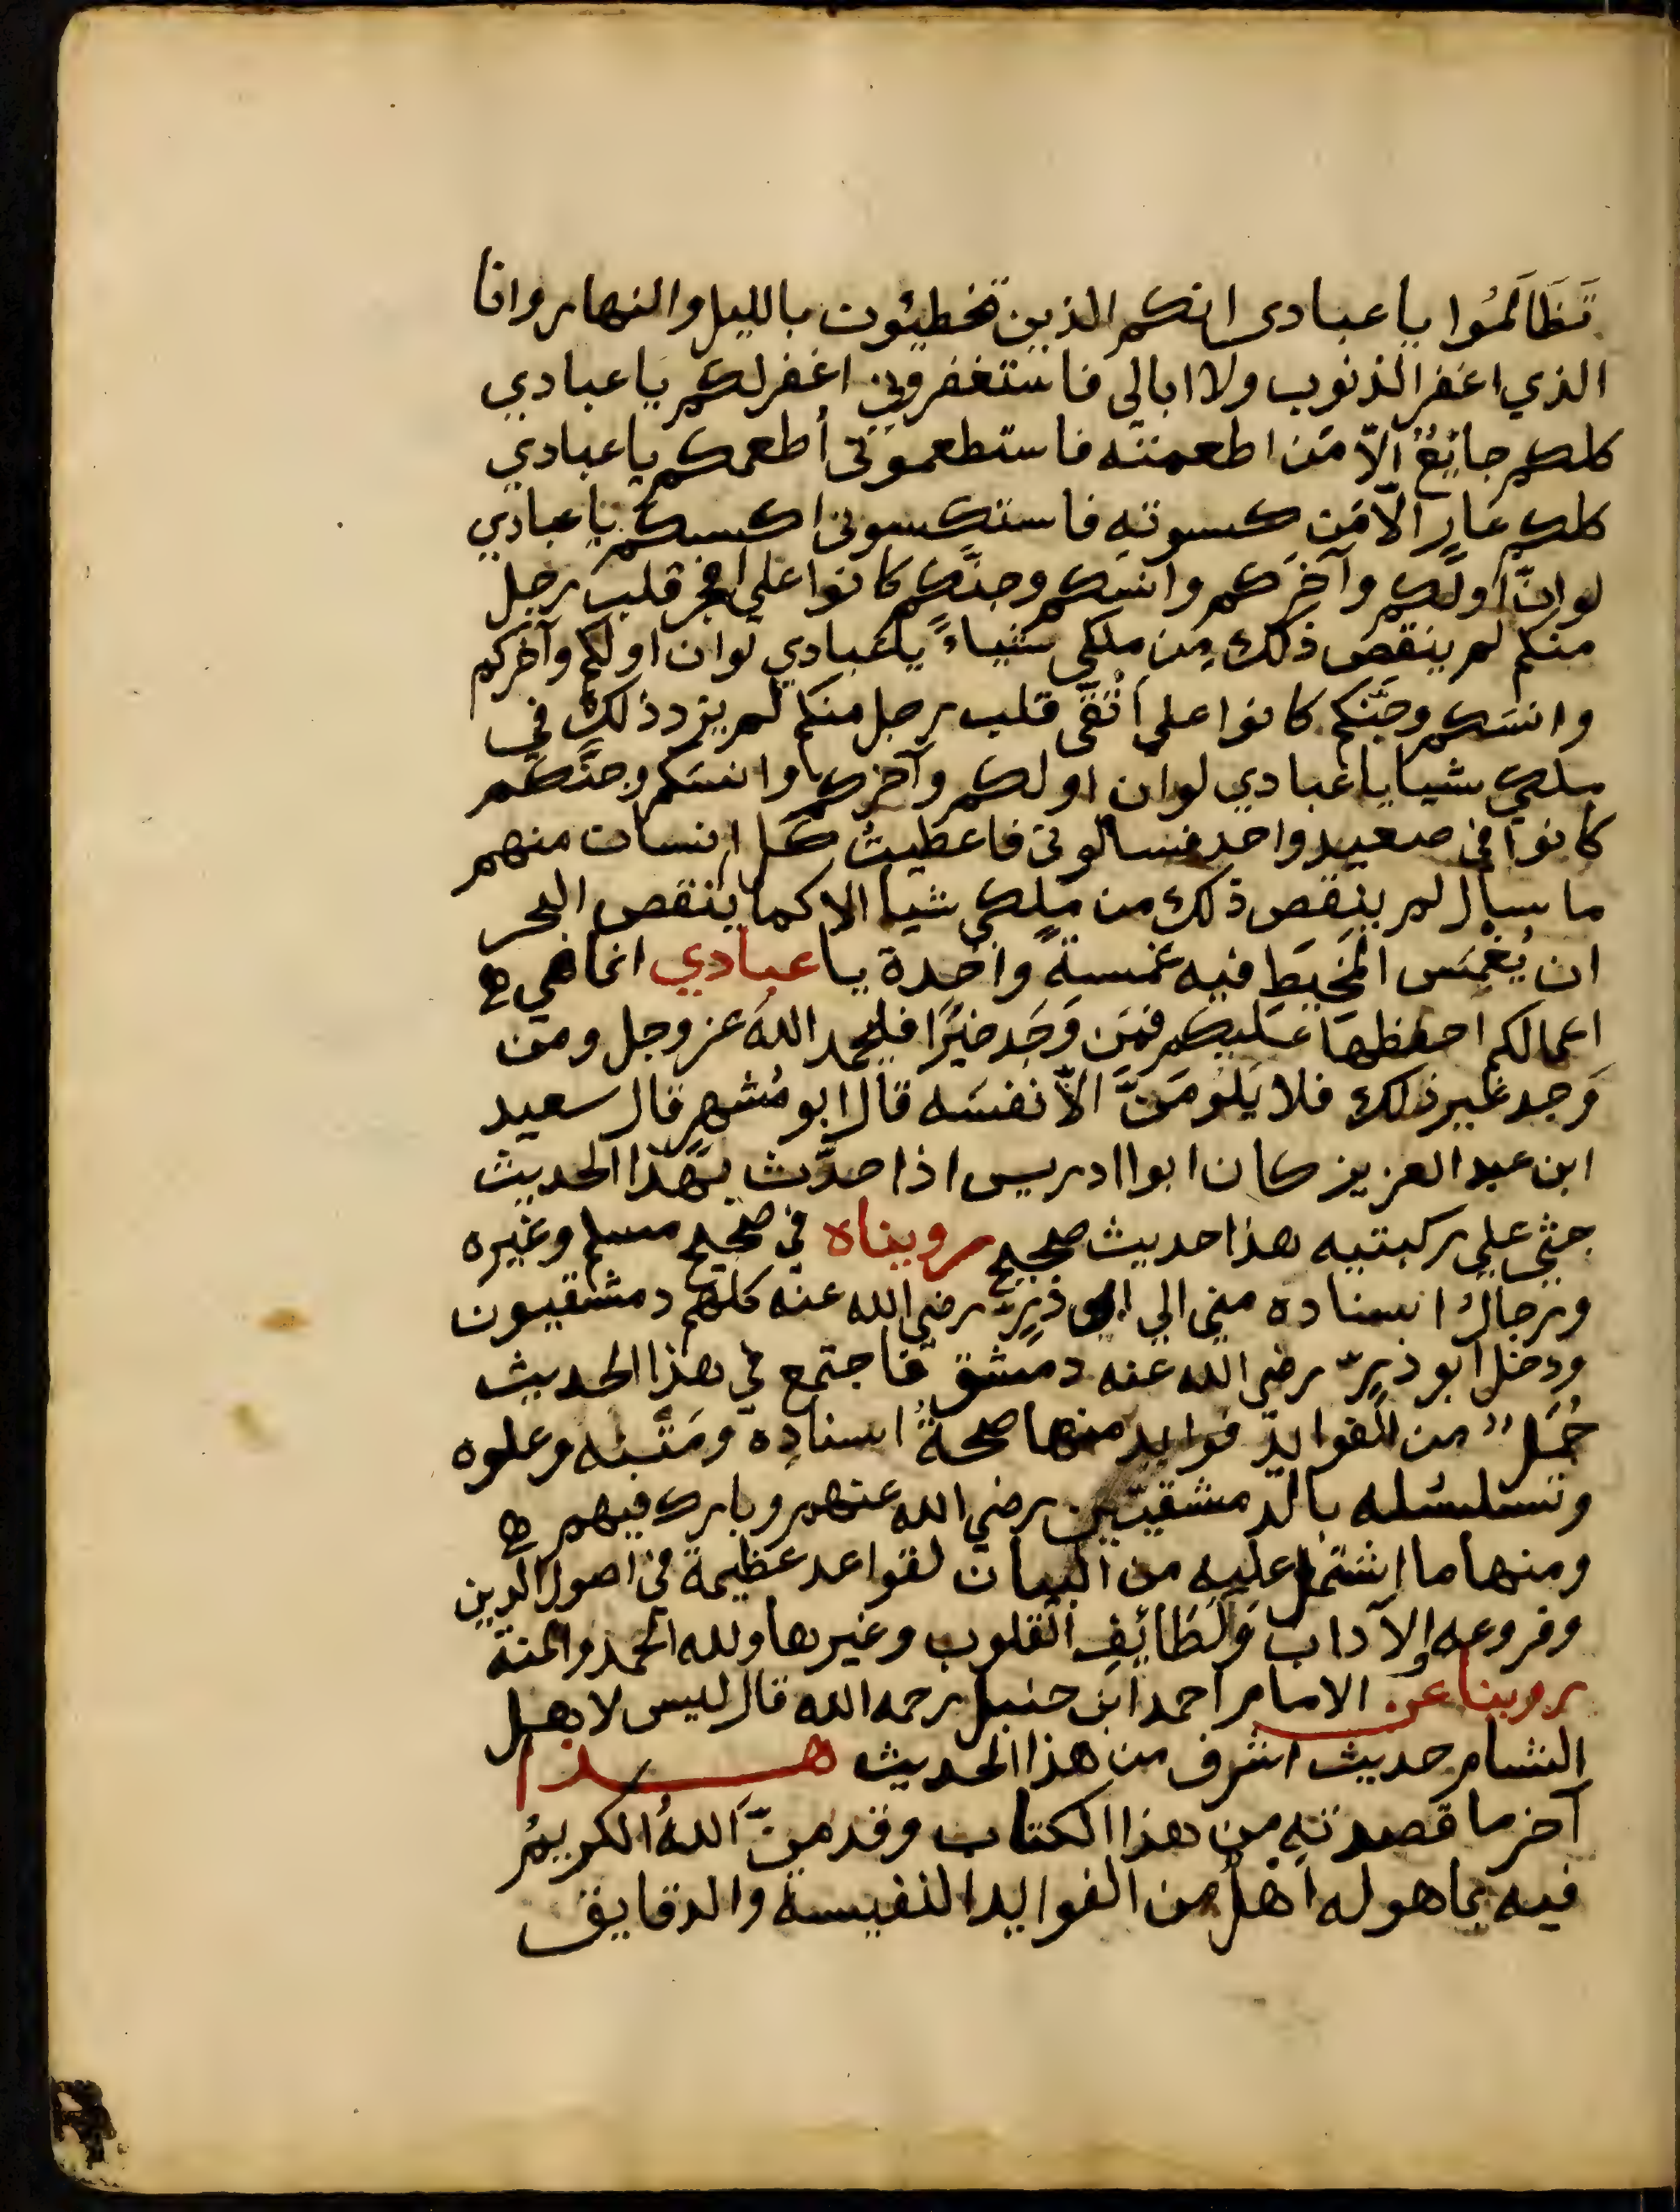 تَظَالَمُوا يا عبادى انكم الذين تخطيئون بالليل والنهار وانا
الذي اغفر الذنوب ولا ابالى فاستغفروني اغفر لكم يا عبادي
كلكم جايعٌ الّا مَن اطعمته فاستطعمونى أطعمكم يا عبادي
كلكم عَارٍ الّا مَن كسوته فاستكسونى اكسكم يا عبادي
لو انّ اولكم وآخرَكم وانسَكم وجنّكم كانوا على افجر قلب رجل
منكم لم ينقص ذلك مِن ملكى شياءً يا عبادي لو ان اولكم وآخركم
وانسَكم وجنّكم كانوا على أَتْقَى قلب رجل منكم لم يزد ذلك في
ملكي شيا يا عبادي لو ان اولكم وآخركم وانسَكم وجنَّكم
كانوا في صعيد واحد فسالونى فاعطيتُ كل انسان منهم
ما سال لم ينقص ذلك من ملكي شيا الا كما ينقص البحر
ان يُغمَس المخيَط فيه غمسةً واحدة يا عبادي انما هي
اعمالكم احفظهَا عَليكم فمَن وَجَد خيرًا فليحمد اللهَ عز وجل ومن
وَجد غير ذلك فلا يَلُومَنَّ الّا نفسَه قال ابو مُسْهِرٍ قال سعيد
ابن عبد العزيز كان ابوا ادريس اذا حدَّث بهَذا الحديث
جثى على ركبتيه هذا حديث صحيح رويناه في صحيح مسلم وغيره
ورجالُ اسناده منى الى ابى ذرٍّ رضي الله عنه كلهم دمشقيون
ودخل ابو ذرٍّ رضي الله عنه دمشق فاجتمع في هذا الحديث
جُمَلٌ من الفوايد فوايد منها صحةُ اسناده ومَتْنه وعلوه
وتسلسُله بالدمشقيين رضي الله عنهم وبارك فيهم
ومنها ما اشتمل عليه من البيان لقواعد عظيمة في اصول الدين
وفروعه والآداب ولَطَائِفِ القلوب وغيرها ولله الحمد والمنة
روينا عن الامام احمد ابن حنبل رحمه الله قال ليس لاهل
الشام حديث اشرف من هذا الحديث هـذا
آخر ما قصدته من هذا الكتاب وقد منَّ اللهُ الكريمُ
فيه بما هو له اهلٌ من الفوايد النفيسة والدقايق